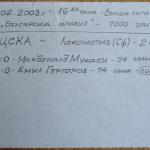 02.2003 г. 16 30 часа - Висша лига
"Българска армия" - 7000 зрит
ЦСКА - Локомотив (Сф) - 2
:0 - Макдоналд Мукаси - 54 мин
:0 - Емил Гъргоров - 74 мин.